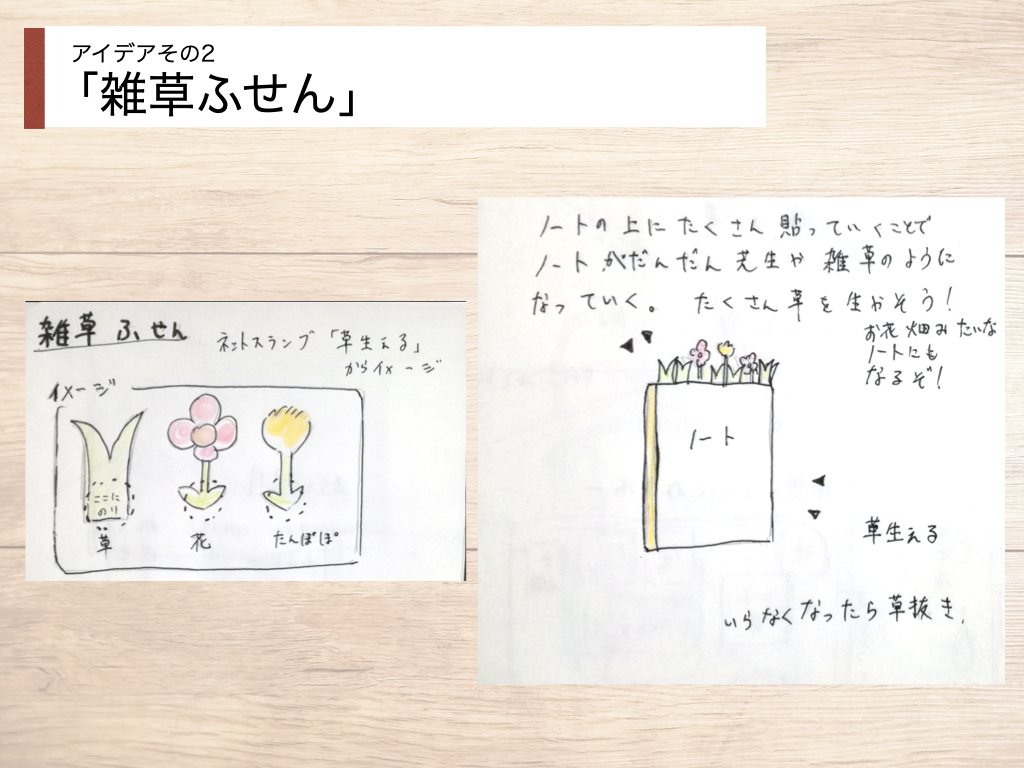 アイデアその2
「雑草ふせん」
雑草ふせん
ネットスラング「草生える」
からイメージ
イメージ
ここに
のり
草
花
たんぽぽ
ノートの上にたくさん貼っていくことで
ノートがだんだん芝生や雑草のように
なっていく。 たくさん草を生かそう!
お花畑みたいな
ノートにも
なるぞ!
ノート
草生える
いらなくなったら草抜き.